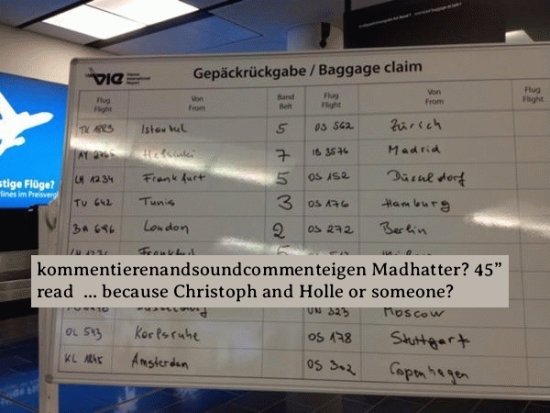 VIE Vienna International Airport
Gepäckrückgabe / Baggage claim
Flug Flight Von From Band Belt Flug Flight Von From
TK 1883 Istanbul 5 OS 562 Zürich
Helsinki 7 IB 3576 Madrid
LH 1234 Frankfurt 5 OS 152 Düsseldorf
TU 642 Tunis 3 OS 176 Hamburg
BA 696 London 2 OS 272 Berlin
kommentierenandsoundcommenteigen Madhatter? 45”
read ... because Christoph and Holle or someone?
Moscow
OL 543 Karlsruhe OS 178 Stuttgart
KL 1845 Amsterdam OS 302 Copenhagen
stige Flüge?